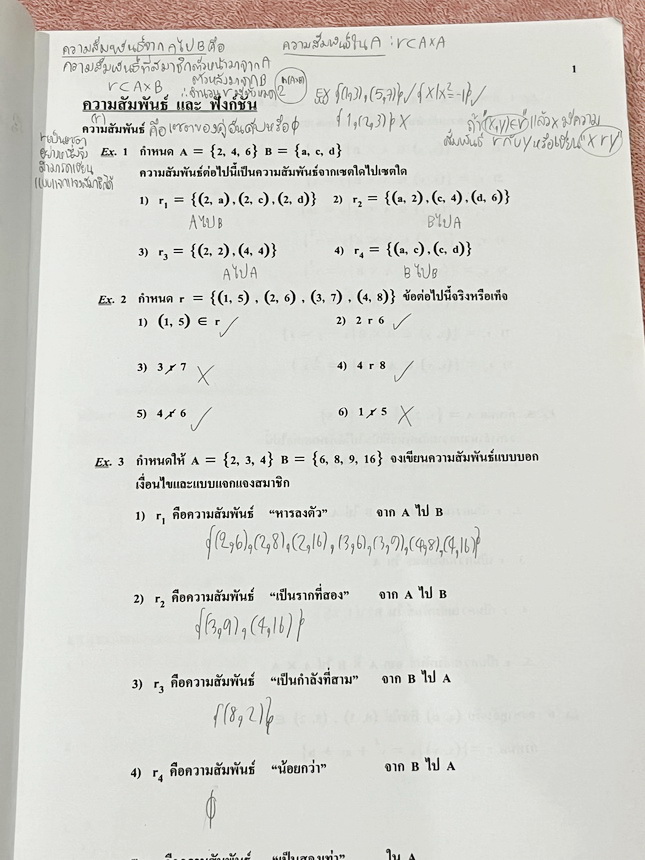 ความสัมพันธ์จาก A ไป B คือ ความสัมพันธ์ใน A : r⊂A×A
ความสัมพันธ์ที่สมาชิกตัวหน้ามาจาก A
r⊂A×B ตัวหลังมาจาก B
1
Ex {(1,3),(5,7)} ✓ {x|x²=-1} ✓
ความสัมพันธ์ และ ฟังก์ชัน
(r) {1,(2,3)} ✗
ถ้า (x,y)∈r แล้ว x มีความ
สัมพันธ์ r กับ y หรือเขียน "x r y"
ความสัมพันธ์ คือ เซตของคู่อันดับหรือ ϕ
Ex. 1 กำหนด A = {2, 4, 6} B = {a, c, d}
ความสัมพันธ์ต่อไปนี้เป็นความสัมพันธ์จากเซตใดไปเซตใด
1) r₁ = {(2, a),(2, c),(2, d)} 2) r₂ = {(a, 2),(c, 4),(d, 6)}
A ไป B B ไป A
3) r₃ = {(2, 2),(4, 4)} 4) r₄ = {(a, c),(c, d)}
A ไป A B ไป B
Ex. 2 กำหนด r = {(1, 5) , (2, 6) , (3, 7) , (4, 8)} ข้อต่อไปนี้จริงหรือเท็จ
1) (1, 5) ∈ r ✓ 2) 2 r 6 ✓
3) 3 r̸ 7 ✗ 4) 4 r 8 ✓
5) 4 r̸ 6 ✓ 6) 1 r̸ 5 ✗
Ex. 3 กำหนดให้ A = {2, 3, 4} B = {6, 8, 9, 16} จงเขียนความสัมพันธ์แบบบอก
เงื่อนไขและแบบแจกแจงสมาชิก
1) r₁ คือความสัมพันธ์ "หารลงตัว" จาก A ไป B
{(2,6),(2,8),(2,16),(3,6),(3,9),(4,8),(4,16)}
2) r₂ คือความสัมพันธ์ "เป็นรากที่สอง" จาก A ไป B
{(3,9),(4,16)}
3) r₃ คือความสัมพันธ์ "เป็นกำลังที่สาม" จาก B ไป A
{(8,2)}
4) r₄ คือความสัมพันธ์ "น้อยกว่า" จาก B ไป A
ϕ
คือความสัมพันธ์ "เป็นสองเท่า" ใน A